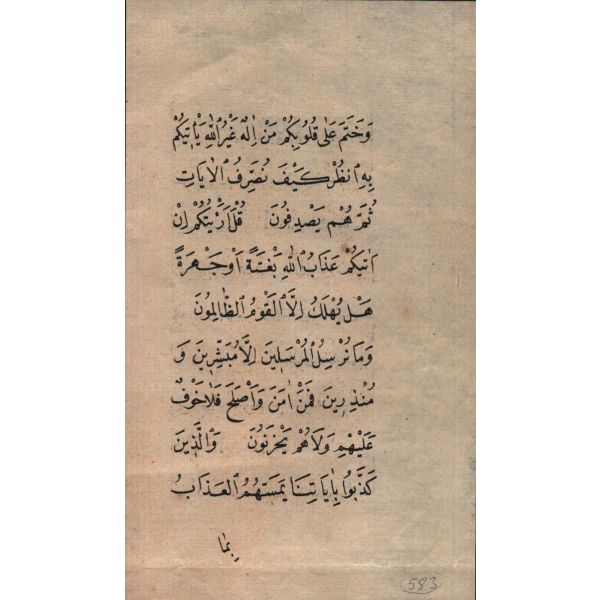 وَخَتَمَ عَلٰى قُلُوبِكُمْ مَنْ اِلٰهٌ غَيْرُ اللّٰهِ يَأْتِيكُمْ
بِهِ اُنْظُرْ كَيْفَ نُصَرِّفُ الْاٰيَاتِ
ثُمَّ هُمْ يَصْدِفُونَ قُلْ اَرَءَيْتَكُمْ اِنْ
اَتٰيكُمْ عَذَابُ اللّٰهِ بَغْتَةً اَوْ جَهْرَةً
هَلْ يُهْلَكُ اِلَّا الْقَوْمُ الظَّالِمُونَ
وَمَا نُرْسِلُ الْمُرْسَلِينَ اِلَّا مُبَشِّرِينَ وَ
مُنْذِرِينَ فَمَنْ اٰمَنَ وَاَصْلَحَ فَلَا خَوْفٌ
عَلَيْهِمْ وَلَا هُمْ يَحْزَنُونَ وَالَّذِينَ
كَذَّبُوا بِاٰيَاتِنَا يَمَسُّهُمُ الْعَذَابُ
بِمَا
583